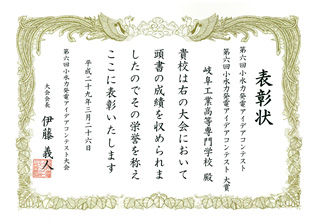 表彰状
第六回小水力発電アイデアコンテスト
第六回小水力発電アイデアコンテスト 大賞
岐阜工業高等専門学校 殿
貴校は右の大会において
頭書の成績を収められま
したのでその栄誉を称え
ここに表彰いたします
平成二十九年三月二十六日
第六回小水力発電アイデアコンテスト大会
大会会長 伊藤 義人